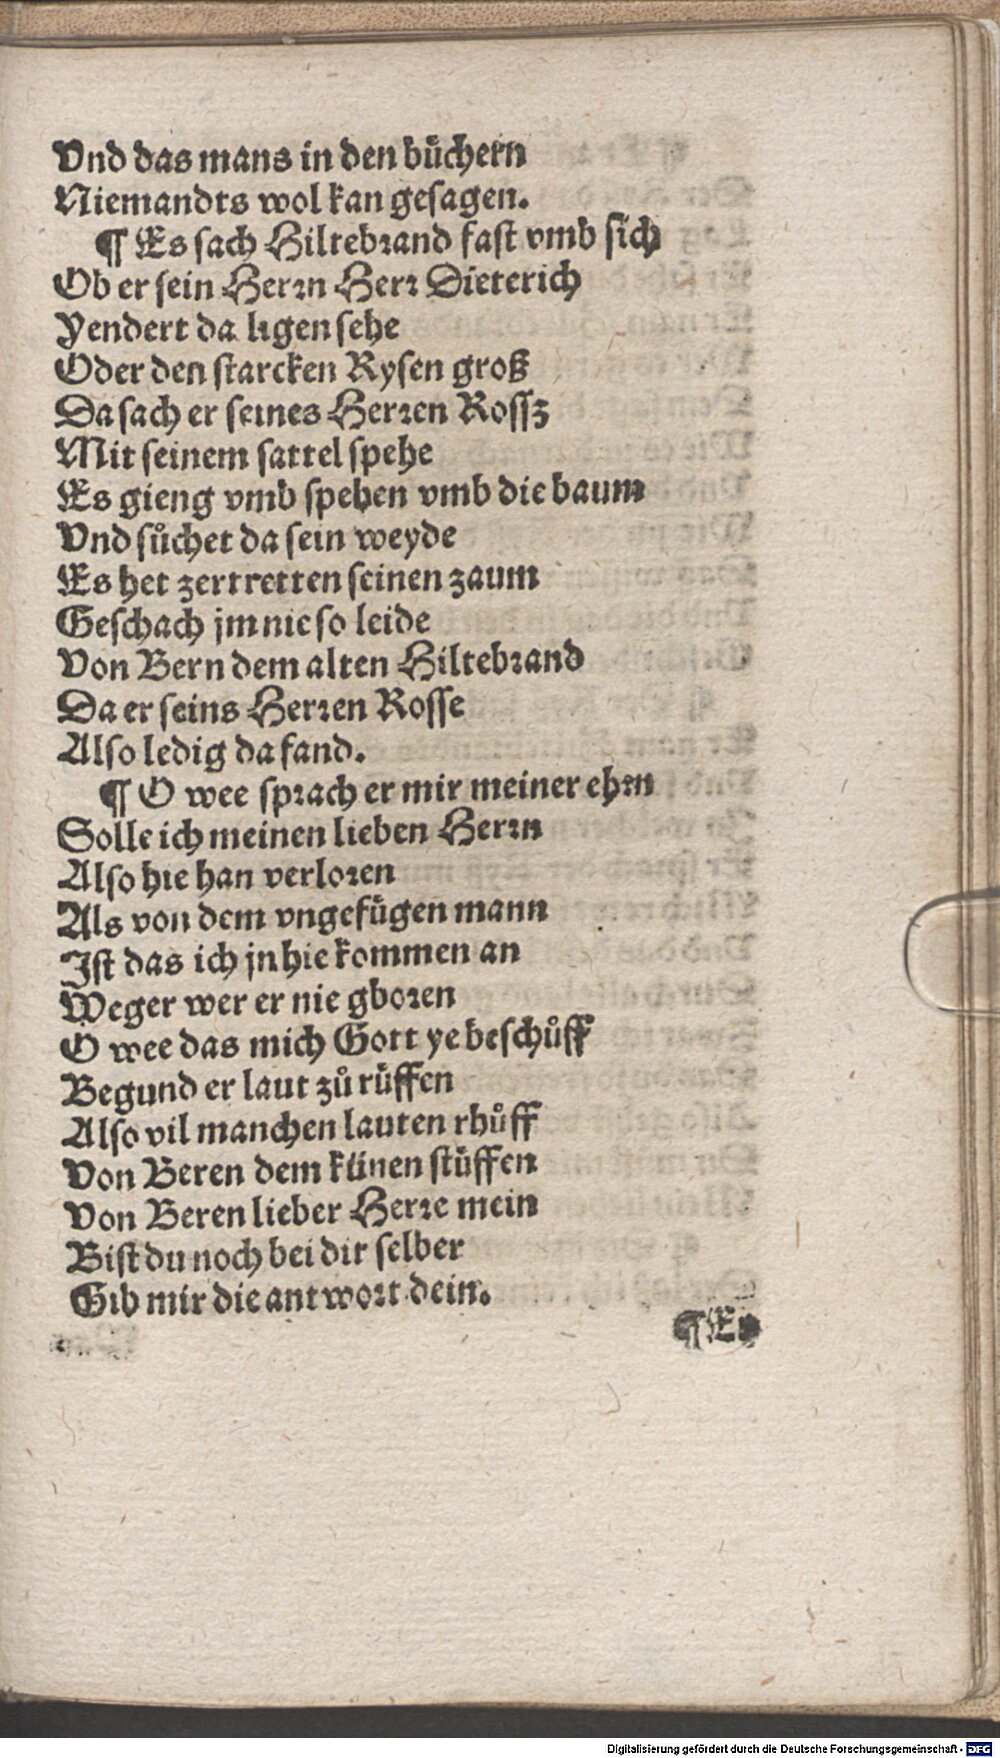 Vnd das mans in den bůchern
Niemandts wol kan gesagen.
¶ Es sach Hiltebrand fast vmb sich
Ob er sein Herrn Herr Dieterich
Yendert da ligen sehe
Oder den starcken Rysen groß
Da sach er seines Herren Rossz
Mit seinem sattel spehe
Es gieng vmb spehen vmb die baum
Vnd sůchet da sein weyde
Es het zertretten seinen zaum
Geschach jm nie so leide
Von Bern dem alten Hiltebrand
Da er seins Herren Rosse
Also ledig da fand.
¶ O wee sprach er mir meiner ehrn
Solle ich meinen lieben Herrn
Also hie han verloren
Als von dem vngefügen mann
Ist das ich jn hie kommen an
Weger wer er nie gboren
O wee das mich Gott ye beschůff
Begund er laut zů rüffen
Also vil manchen lauten rhůff
Von Beren dem künen stüffen
Von Beren lieber Herre mein
Bist du noch bei dir selber
Gib mir die antwort dein.
¶ Er
Digitalisierung gefördert durch die Deutsche Forschungsgemeinschaft - DFG